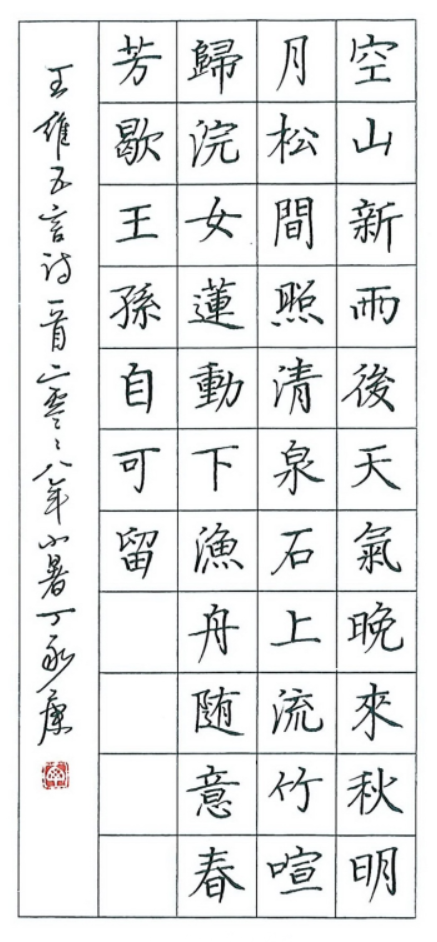 空山新雨後天氣晚來秋明
月松間照清泉石上流竹喧
歸浣女蓮動下漁舟随意春
芳歇王孫自可留
王維五言诗一首二零〻八年小暑丁永康